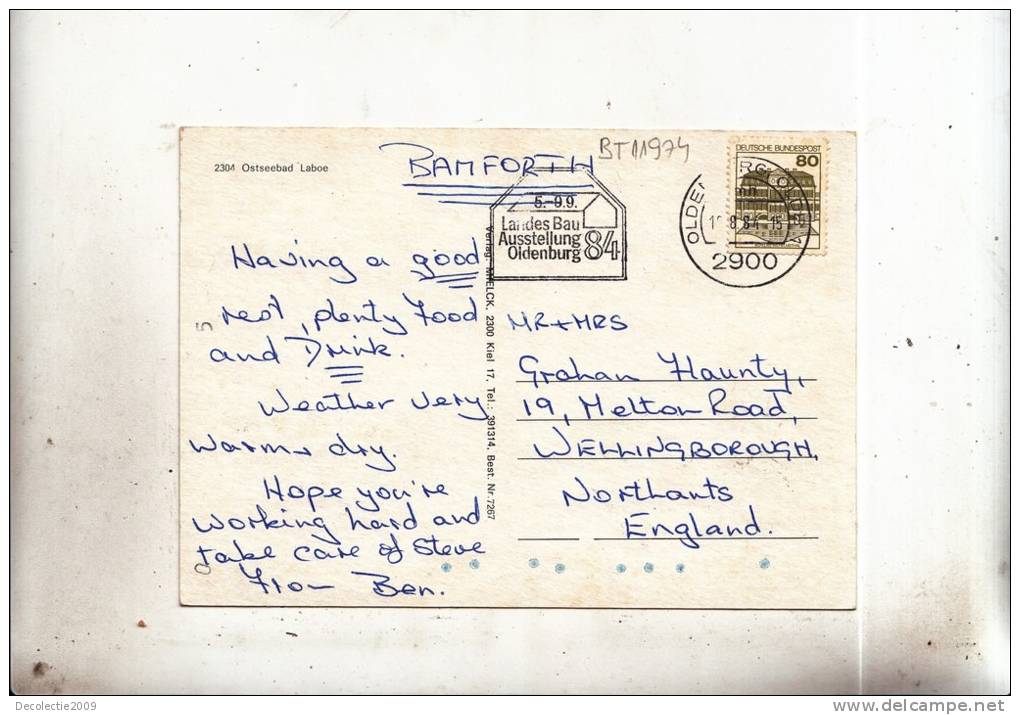 2304 Ostseebad Laboe
BAMFORTH
BT 11974
DEUTSCHE BUNDESPOST
80
5.-9.9.
Landes Bau
Ausstellung
Oldenburg 84
8.84-15
2900
Having a good
rest, plenty Food
and Drink.
Weather very
warm + dry.
Hope you're
working hard and
take care of Steve
From Ben.
Verlag: MIELCK, 2300 Kiel 17, Tel.: 391314, Best. Nr. 7267
MR + MRS
Graham Haunty,
19, Melton Road,
WELLINGBOROUGH,
Northants
England.
Decolectie2009
www.delcampe.net